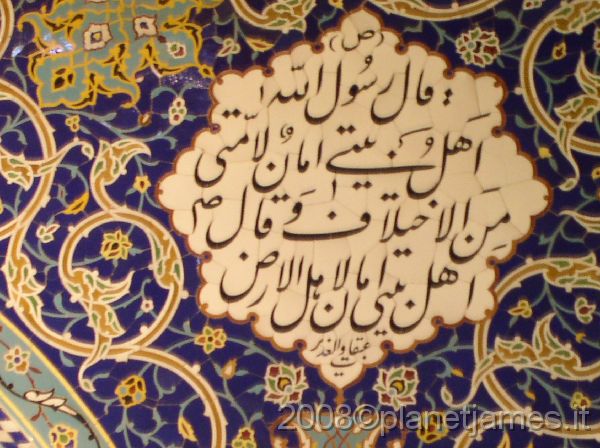 (ص)
قال رسُول الله :
اَهلُ بَیتی امانٌ لاُمّتی
مِنَ الاختلاف وَ قال ص
اهل بیتی امان لاهل الارض
عبقات والغدیر
2008©planetjames.it